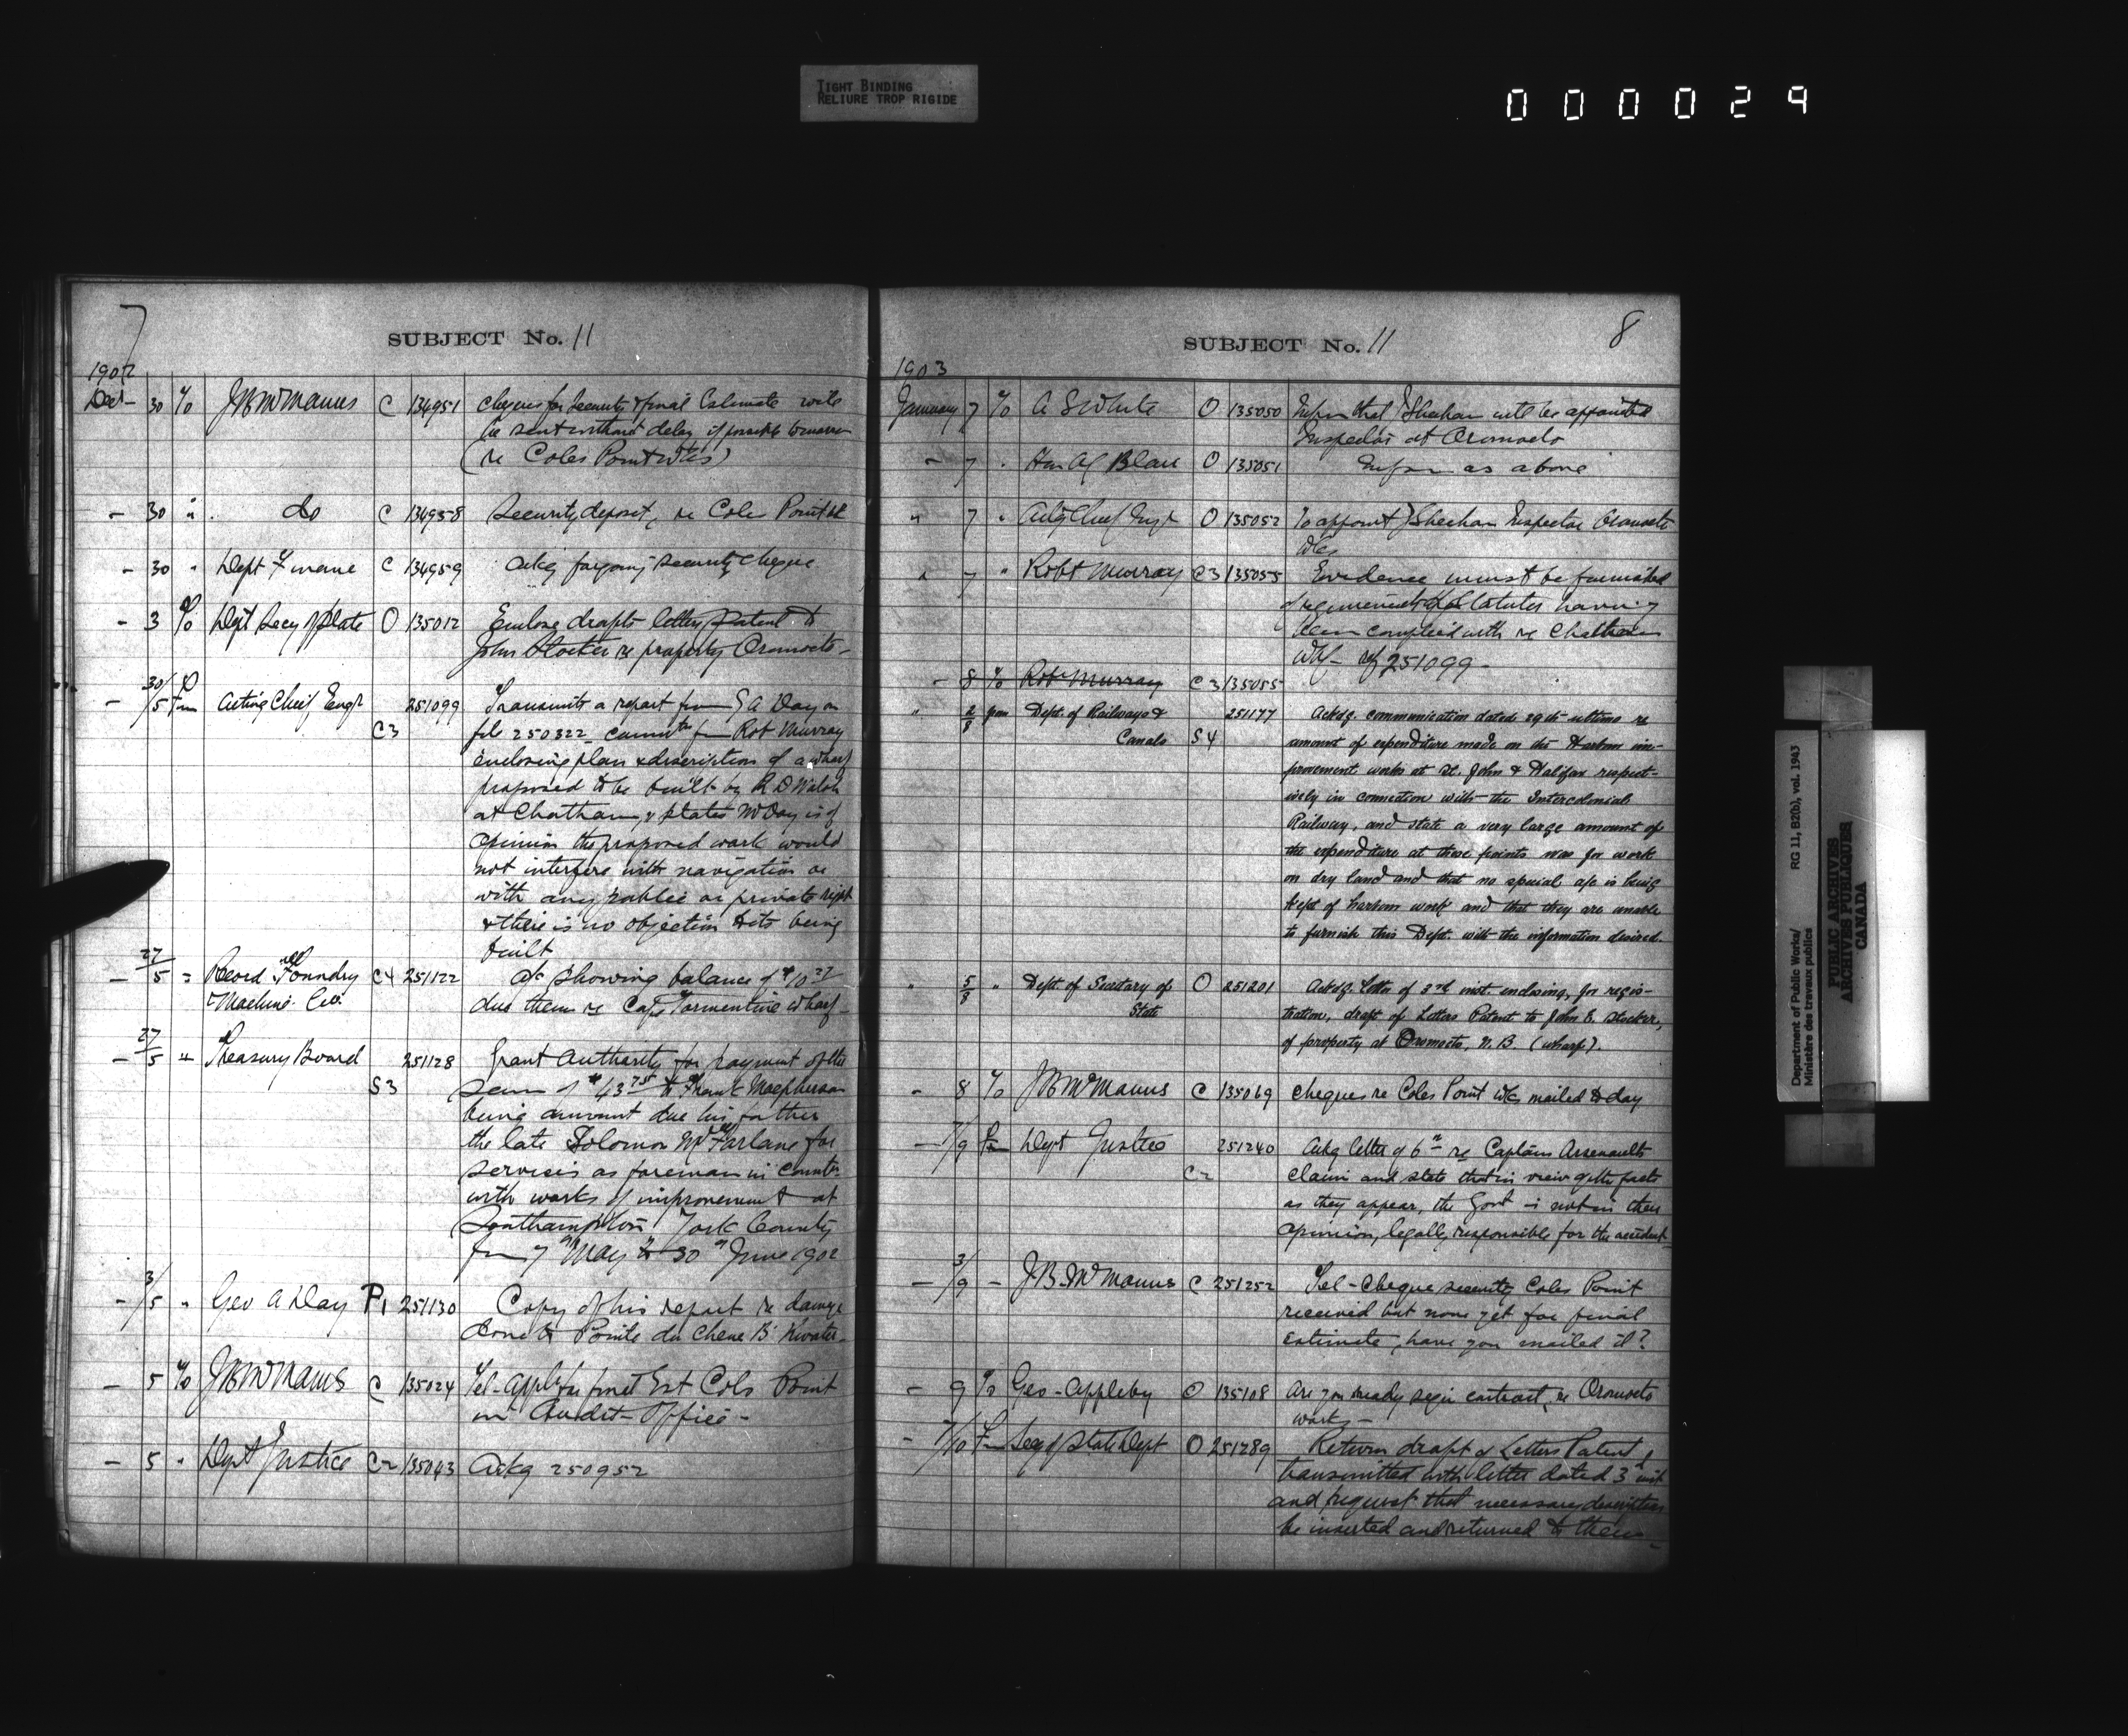 TIGHT BINDING
RELIURE TROP RIGIDE
000029
7
SUBJECT No. 11
1902
Dec - 30 To J B McManus C 134951 Cheques for security & final Estimate will
be sent without delay if possible tomorrow
(re Coles Point Wks)
- 30 " do C 134958 Security deposit, re Coles Point
- 30 " Dept Finance C 134959 Ackg forgoing security cheque
- 3 To Dept Secy of State O 135012 Enclose drafts letters Patent to
John Stocker re property Oromocto -
- 30/5 Fm Acting Chief Engr 251099 Transmits a report from G A Day on
C3 file 250322 from Rob Murray
enclosing plan & description of a wharf
proposed to be built by R D Walsh
at Chatham, & states Mr Day is of
opinion the proposed work would
not interfere with navigation or
with any public or private right
& there is no objection to its being
built
- 27/5 " Record Foundry C4 251122 a/c showing balance of $10 27
& Machine Co. due them re Cape Tormentine wharf -
- 27/5 " Treasury Board 251128 Grant Authority for payment of the
S3 sum of $43 75 to Frank Macpherson
being amount due his father
the late Solomon McFarlane for
services as foreman in
with works of improvement at
Southampton York County
from 7th May to 30th June 1902
- 3/5 " Geo A Day P1 251130 Copy of his report re damage
done to Pointe du Chene B'kwater -
- 5 To J B McManus C 135024 Tel - Appln for final Est Cols Point
in Audit Office -
- 5 " Dept Justice C2 135043 Ackg 250952
8
SUBJECT No. 11
1903
January 7 To A S White O 135050 Inform that Sheehan will be appointed
Inspector at Oromocto
- 7 " Hon A G Blair O 135051 Inform as above
" 7 " Actg Chief Engr O 135052 To appoint Sheehan Inspector Oromocto
Wks
" 7 " Robt Murray C3 135055 Evidence must be furnished
of requirements of Statutes having
been complied with re Chatham
Whf - ref 251099 -
- 8 To Robt Murray C3 135055
" 2/8 from Dept. of Railways & 251177 Ackdg. communication dated 29th ultimo re
Canals S4 amount of expenditure made on the Harbour im-
provement works at St. John & Halifax respect-
ively in connection with the Intercolonial
Railway, and state a very large amount of
the expenditure at these points was for work
on dry land and that no special a/c is being
kept of harbour work and that they are unable
to furnish this Dept. with the information desired.
" 5/8 " Dept. of Secretary of O 251201 Ackdg. letter of 3rd inst. enclosing, for regis-
State tration, draft of Letters Patent to John E. Stocker,
of property at Oromocto, N.B. (wharf).
- 8 To J B McManus C 135069 Cheques re Coles Point Wks mailed today
- 7/9 Fm Dept Justice 251240 Ackg letter of 6th re Captain Arsenault's
C2 claim and state that in view of the facts
as they appear, the Govt is not in their
opinion, legally responsible for the accident
- 3/9 - J. B. McManus C 251252 Tel - Cheque security Coles Point
received but none yet for final
estimate, have you mailed it?
- 9 To Geo - Appleby O 135108 Are you ready sign contract, re Oromocto
works -
- 7/10 Fm Secy of State Dept O 251289 Return draft of Letters Patent
transmitted with letter dated 3d inst
and request that necessary description
be inserted and returned to them -
Department of Public Works/
Ministère des travaux publics
RG 11, B2(b), vol. 1943
PUBLIC ARCHIVES
ARCHIVES PUBLIQUES
CANADA